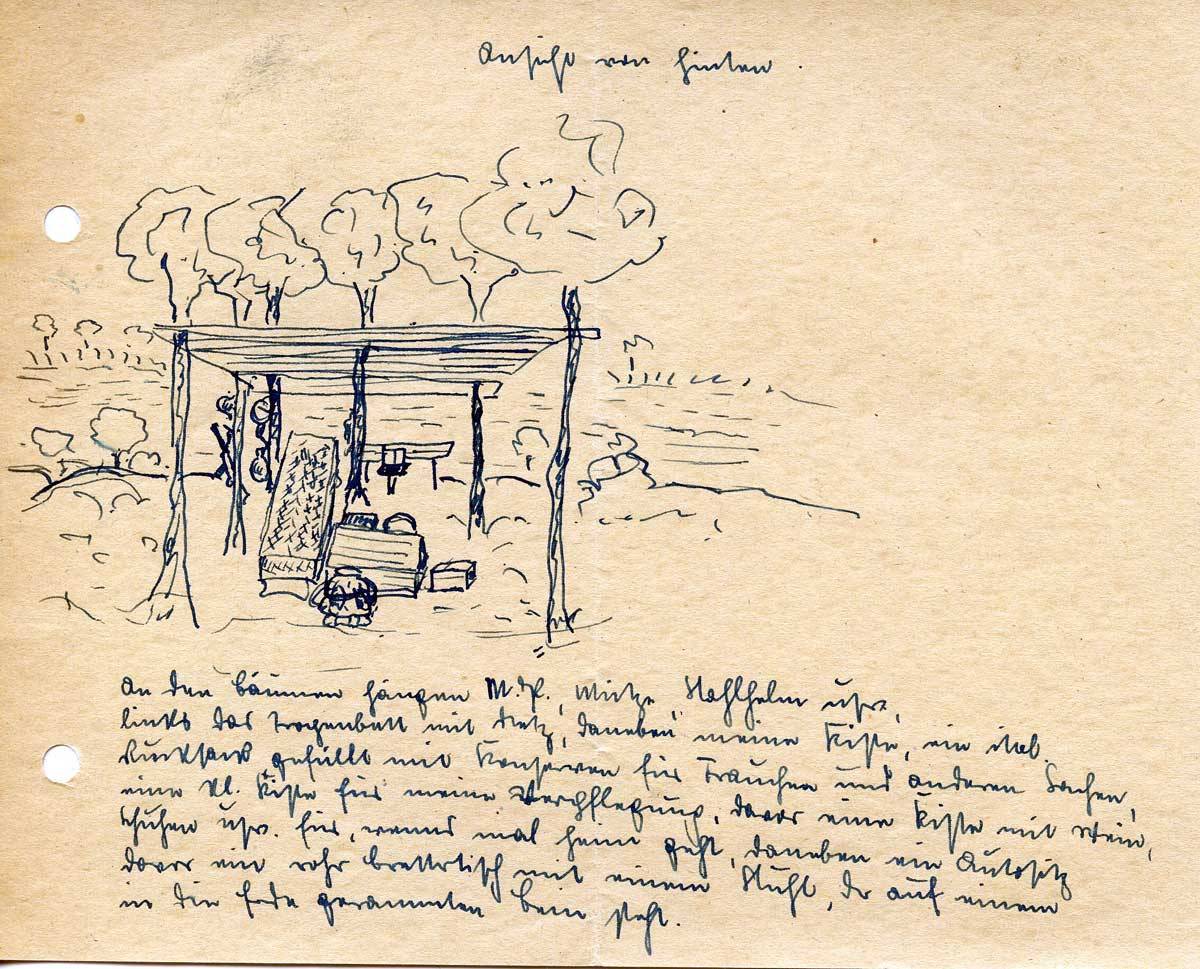 Ansicht von hinten.
An den Bäumen hängen M.P., Mütze, Stahlhelm usw.,
links das Tropenbett mit Netz, daneben meine Kiste, ein ital.
Rucksack gefüllt mit Konserven für Frauchen und anderen Sachen,
eine kl. Kiste für meine Verpflegung, davor eine Kiste mit Wein,
Schuhen usw. für, wenns mal heim geht, daneben ein Autositz
davor ein roher Brettertisch mit einem Stuhl, der auf einem
in die Erde gerammten Bein steht.